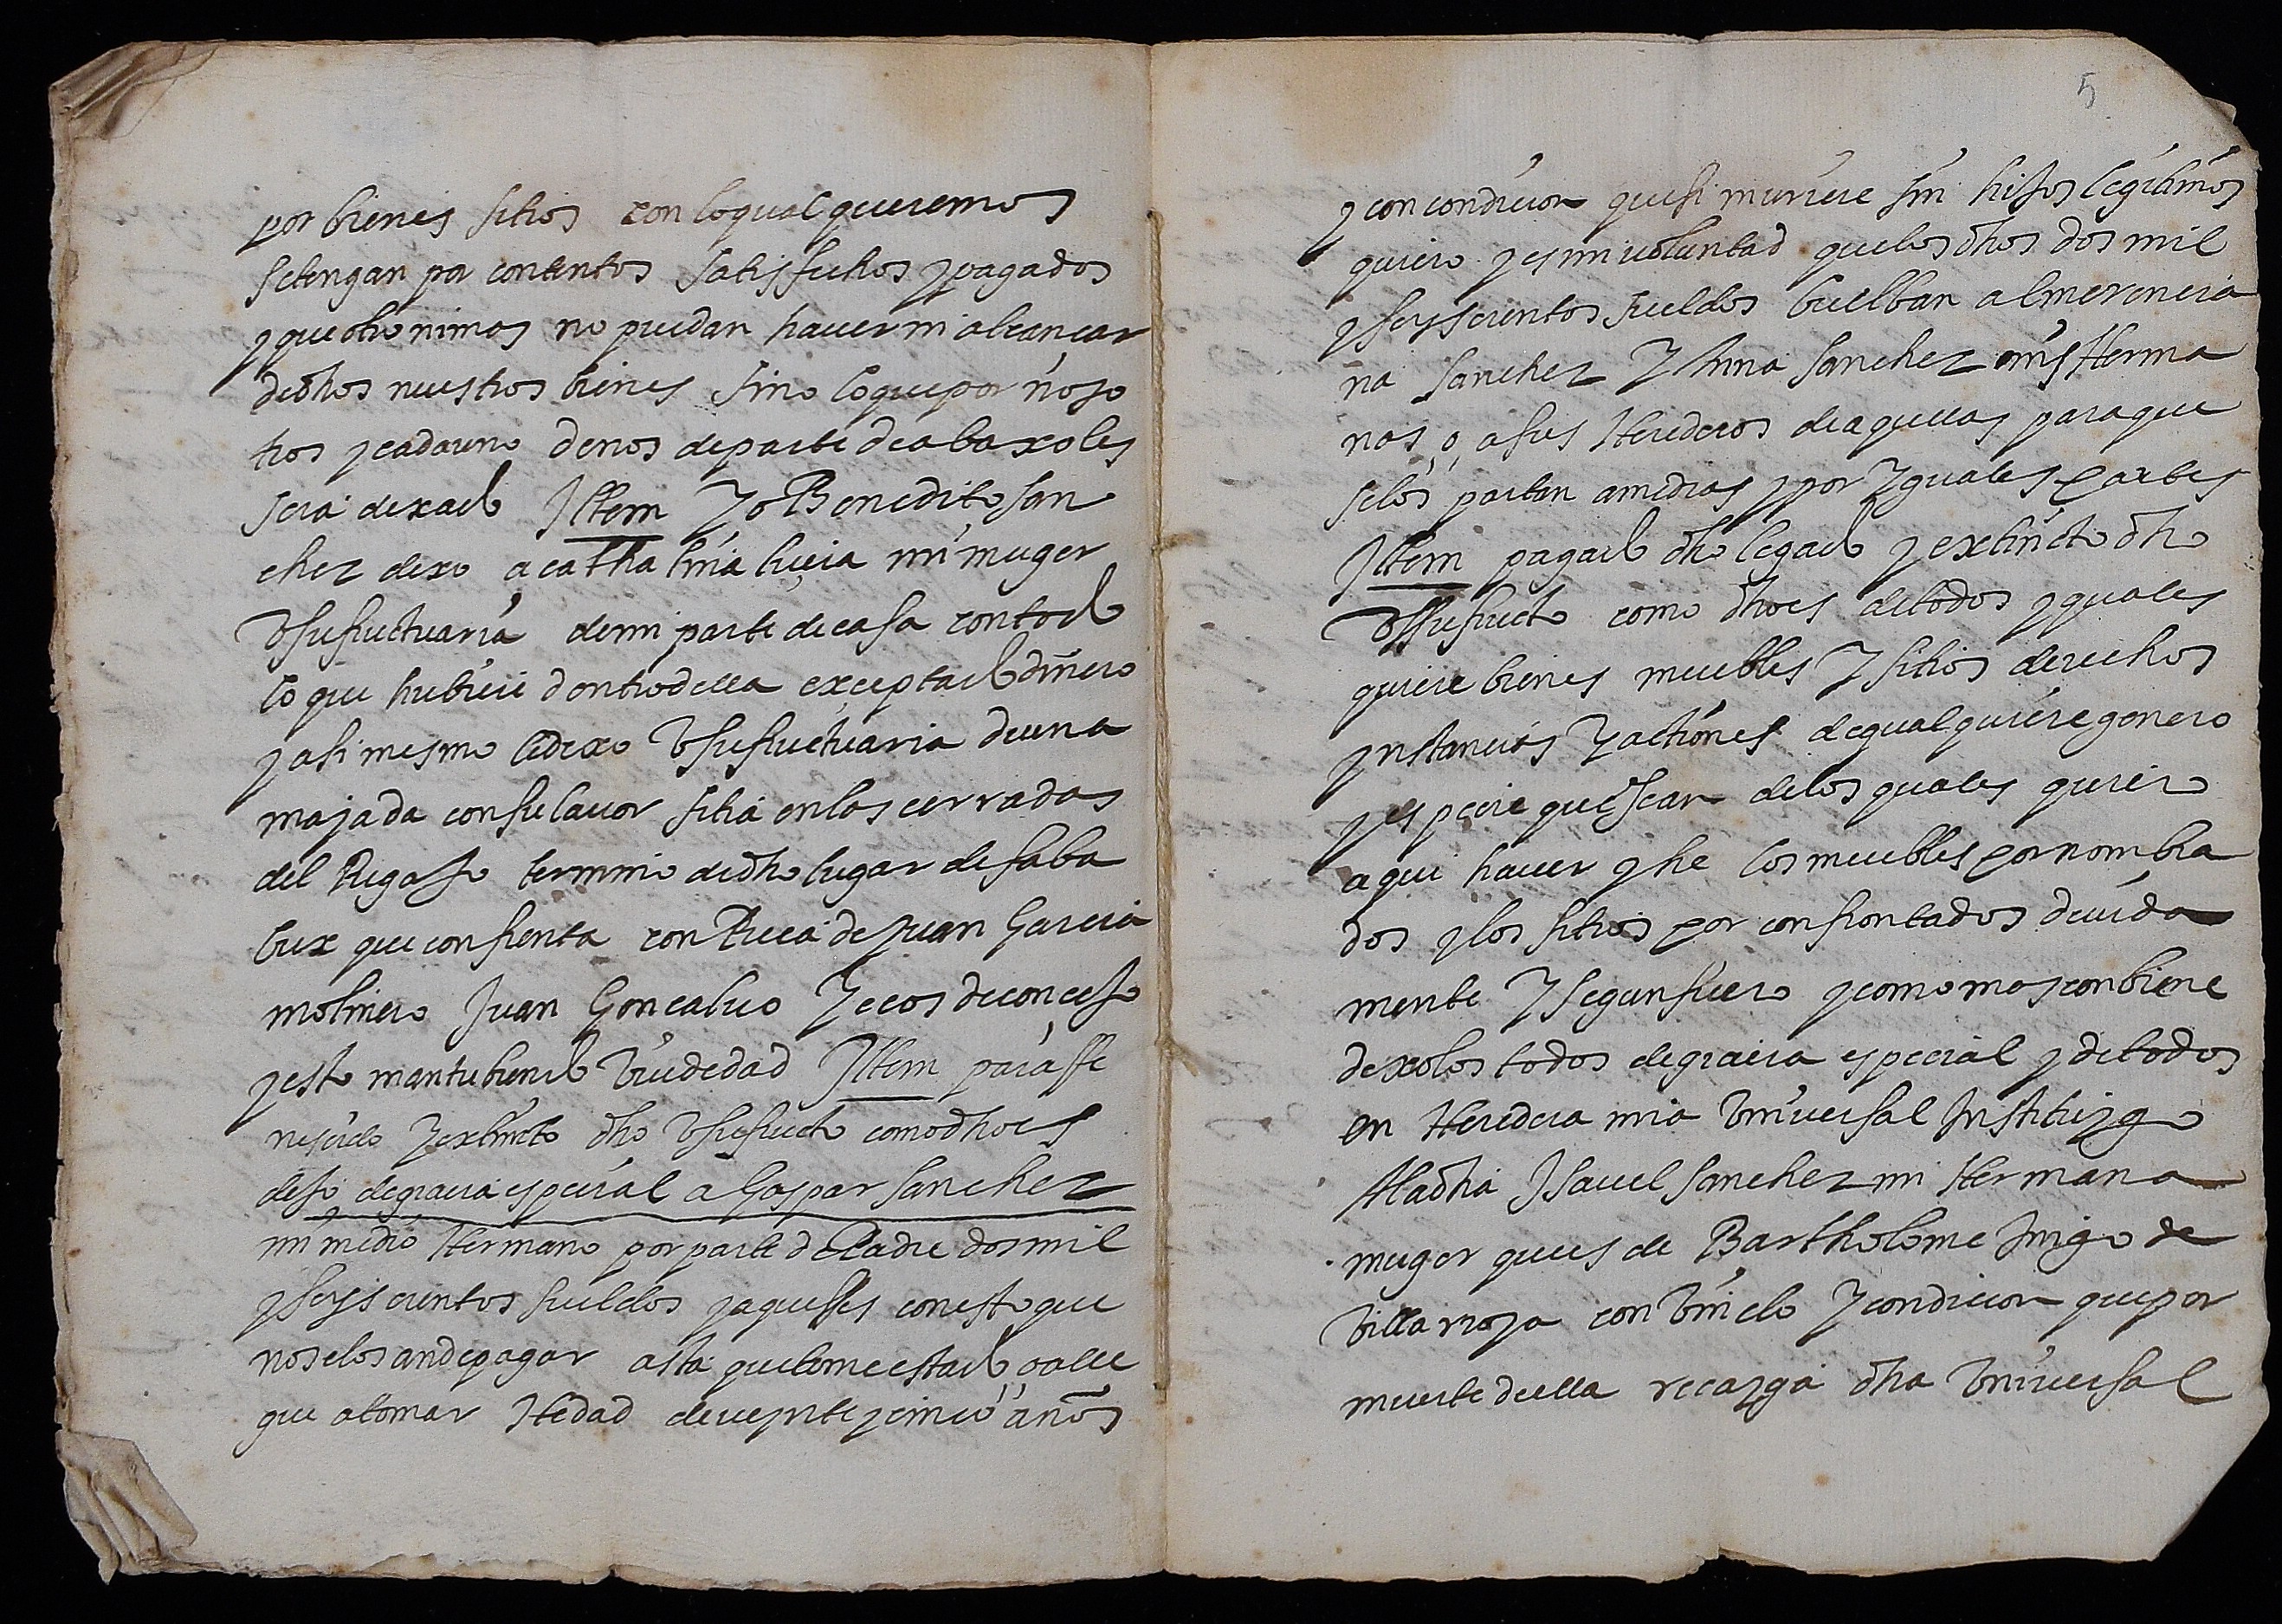 por bienes sitios con loqual queremos
setengan por contentos satisfechos y pagados
y que otro ni mas no puedan hauer ni alcançar
de dhos nuestros bienes sino loque por noso
tros y cada uno de nos de parte de abaxo les
sera dexado Ittem Yo Benedito San
chez dexo a cathalina lucia mi muger
Vsufructuaria de mi parte de casa con todo
lo que hubiere dentro della exceptado dinero
y asi mesmo le dexo Vsufructuaria de una
majada con su lauor sitia en las cerradas
del Regajo termino de dho lugar de saba
bux que confrenta con Pieca de Juan Garcia
molinero Juan Goncaluo Y ecos de concejo
y esto mantubiendo Viudedad Ittem para ffe
nesido y extincto dho Vsufructo como dho es
dejo de gracia especial a Gaspar Sanchez
mi medio Hermano por parte de Padre dos mil
y seys cientos sueldos y aquestes con esto que
no se los an de pagar asta que tome estado o alle
que a tomar Hedad de ueynte y cinco años
5
y con condicion que si muriere sin hijos legitimos
quiero y es mi uoluntad que los dhos dos mil
y seys cientos sueldos buelban a lmerencia
na Sanchez Y Anna Sanchez mis Herma
nas, o, a sus Herederos de aquellas para que
se los partan a medias y por Yguales partes
Ittem pagado dho legado y extincto dho
Vssufructo como dho es de todos y quales
quiere bienes muebles Y sitios derechos
ynstancias Y actiones de qualquiere genero
y especie que sean de los quales quiero
aqui hauer y he los muebles por nombra
dos y los sitios por confrontados deuida
mente Y segun fuero y como mas conbiene
dexolos todos de gracia especial y de todos
en Heredera mia Vniuersal Instituygo
A la dha Isauel Sanchez mi Hermana
muger que es de Bartholome Inigo de
Villarroya con Vinclo Y condicion que por
muerte de ella recayga dha Vniuersal